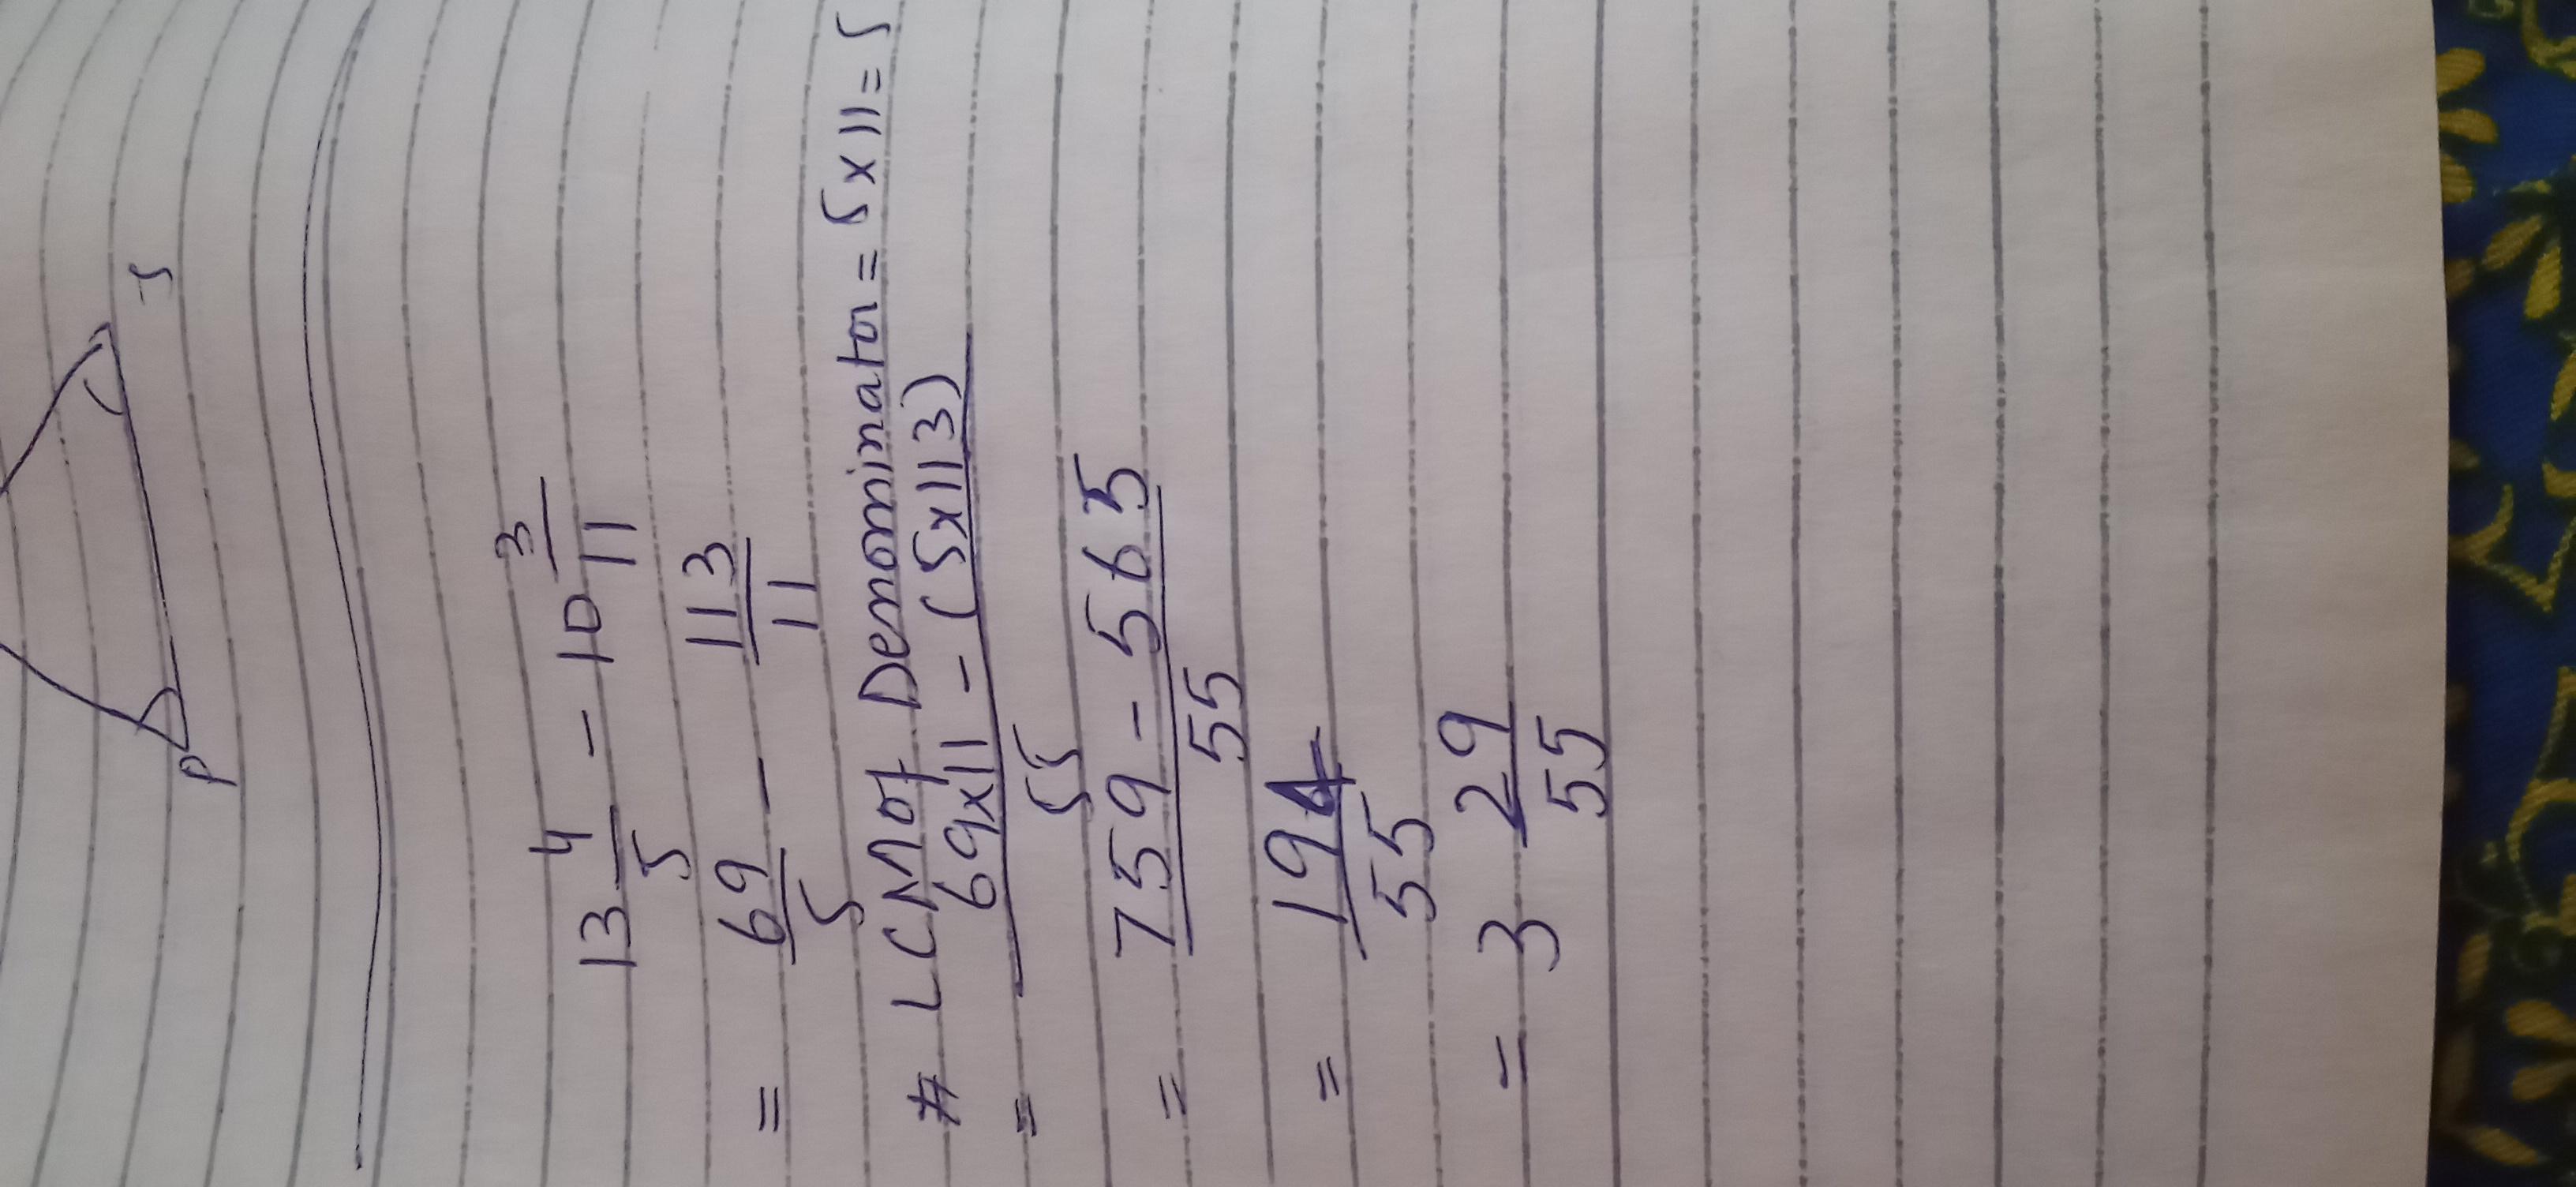 P S
13 4/5 - 10 3/11
= 69/5 - 113/11
# LCM of Denominator = 5x11 = 5
= 69x11 - (5x113) / 55
= 759 - 565 / 55
= 194/55
= 3 29/55